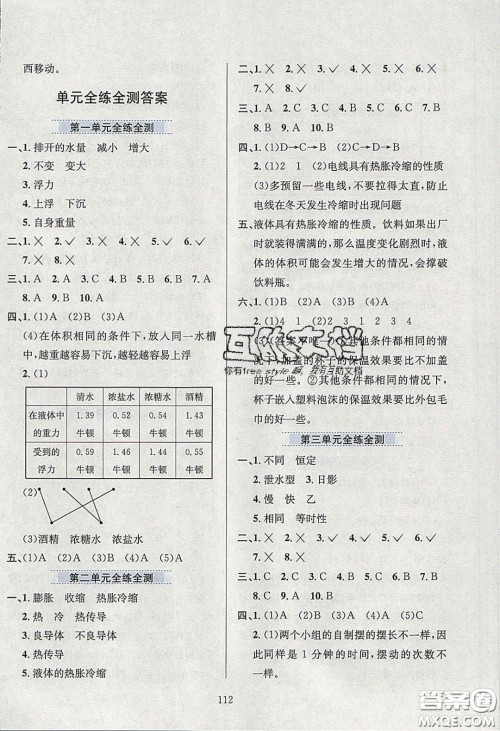 西移动。
单元全练全测答案
第一单元全练全测
一、1. 排开的水量 减小 增大
2. 不变 变大
3. 浮力
4. 上浮 下沉
5. 自身重量
二、1. ✕ 2. ✕ 3. ✓ 4. ✕ 5. ✓ 6. ✓
7. ✕ 8. ✓
三、1. A 2. C 3. C 4. A 5. B 6. B 7. A
8. B 9. A 10. B
四、1. (1)A (2)B (3)A
(4)在体积相同的条件下,放入同一水槽
中,越重越容易下沉,越轻越容易上浮
2. (1)
清水 浓盐水 浓糖水 酒精
在液体中的重力 1.39牛顿 0.52牛顿 0.54牛顿 1.43牛顿
受到的浮力 0.59牛顿 1.46牛顿 1.44牛顿 0.55牛顿
(2)
(3)酒精 浓糖水 浓盐水
五、(1)A (2)A (3)B (4)A (5)A
第二单元全练全测
一、1. 膨胀 收缩 热胀冷缩
2. 热 冷 热传导
3. 良导体 不良导体
4. 热传导
5. 液体的热胀冷缩
二、1. ✕ 2. ✕ 3. ✓ 4. ✕ 5. ✓ 6. ✓
7. ✕ 8. ✕
三、1. C 2. A 3. B 4. A 5. B 6. A 7. B
8. B 9. A 10. B
四、1. (1)D→C→B→A (2)A
2. (1)2 1 (2)电线有热胀冷缩的性质
(3)多预留一些电线,不要拉得太直,防止
电线在冬天发生冷缩时出现问题
五、液体具有热胀冷缩的性质。饮料如果出厂
时就装得满满的,那么温度变化剧烈时,液
体的体积可能会发生增大的情况,会撑破
饮料瓶。
六、1. (1)B (2)A (3)B (4)A
的杯子的保温效果要比不加盖
的杯子好一些。②其他条件都相同的情况下,
杯子嵌入塑料泡沫的保温效果要比外包毛
巾的好一些。
第三单元全练全测
一、1. 不同 恒定
2. 泄水型 3. 日影
4. 慢 快 乙
5. 相同 等时性
二、1. ✕ 2. ✕ 3. ✓ 4. ✓ 5. ✓ 6. ✓
7. ✕ 8. ✕
三、1. C 2. B 3. C 4. B 5. B 6. A 7. B
8. B 9. A 10. B
四、1. (1)D (2)C (3)A (4)B
2. (1)两个小组的自制摆的摆长不一样,因
此同样是 1 分钟的时间,摆动的次数不
一样。
112
互助文档
你有free style,我有互助文档
答案圈
MXQE.COM